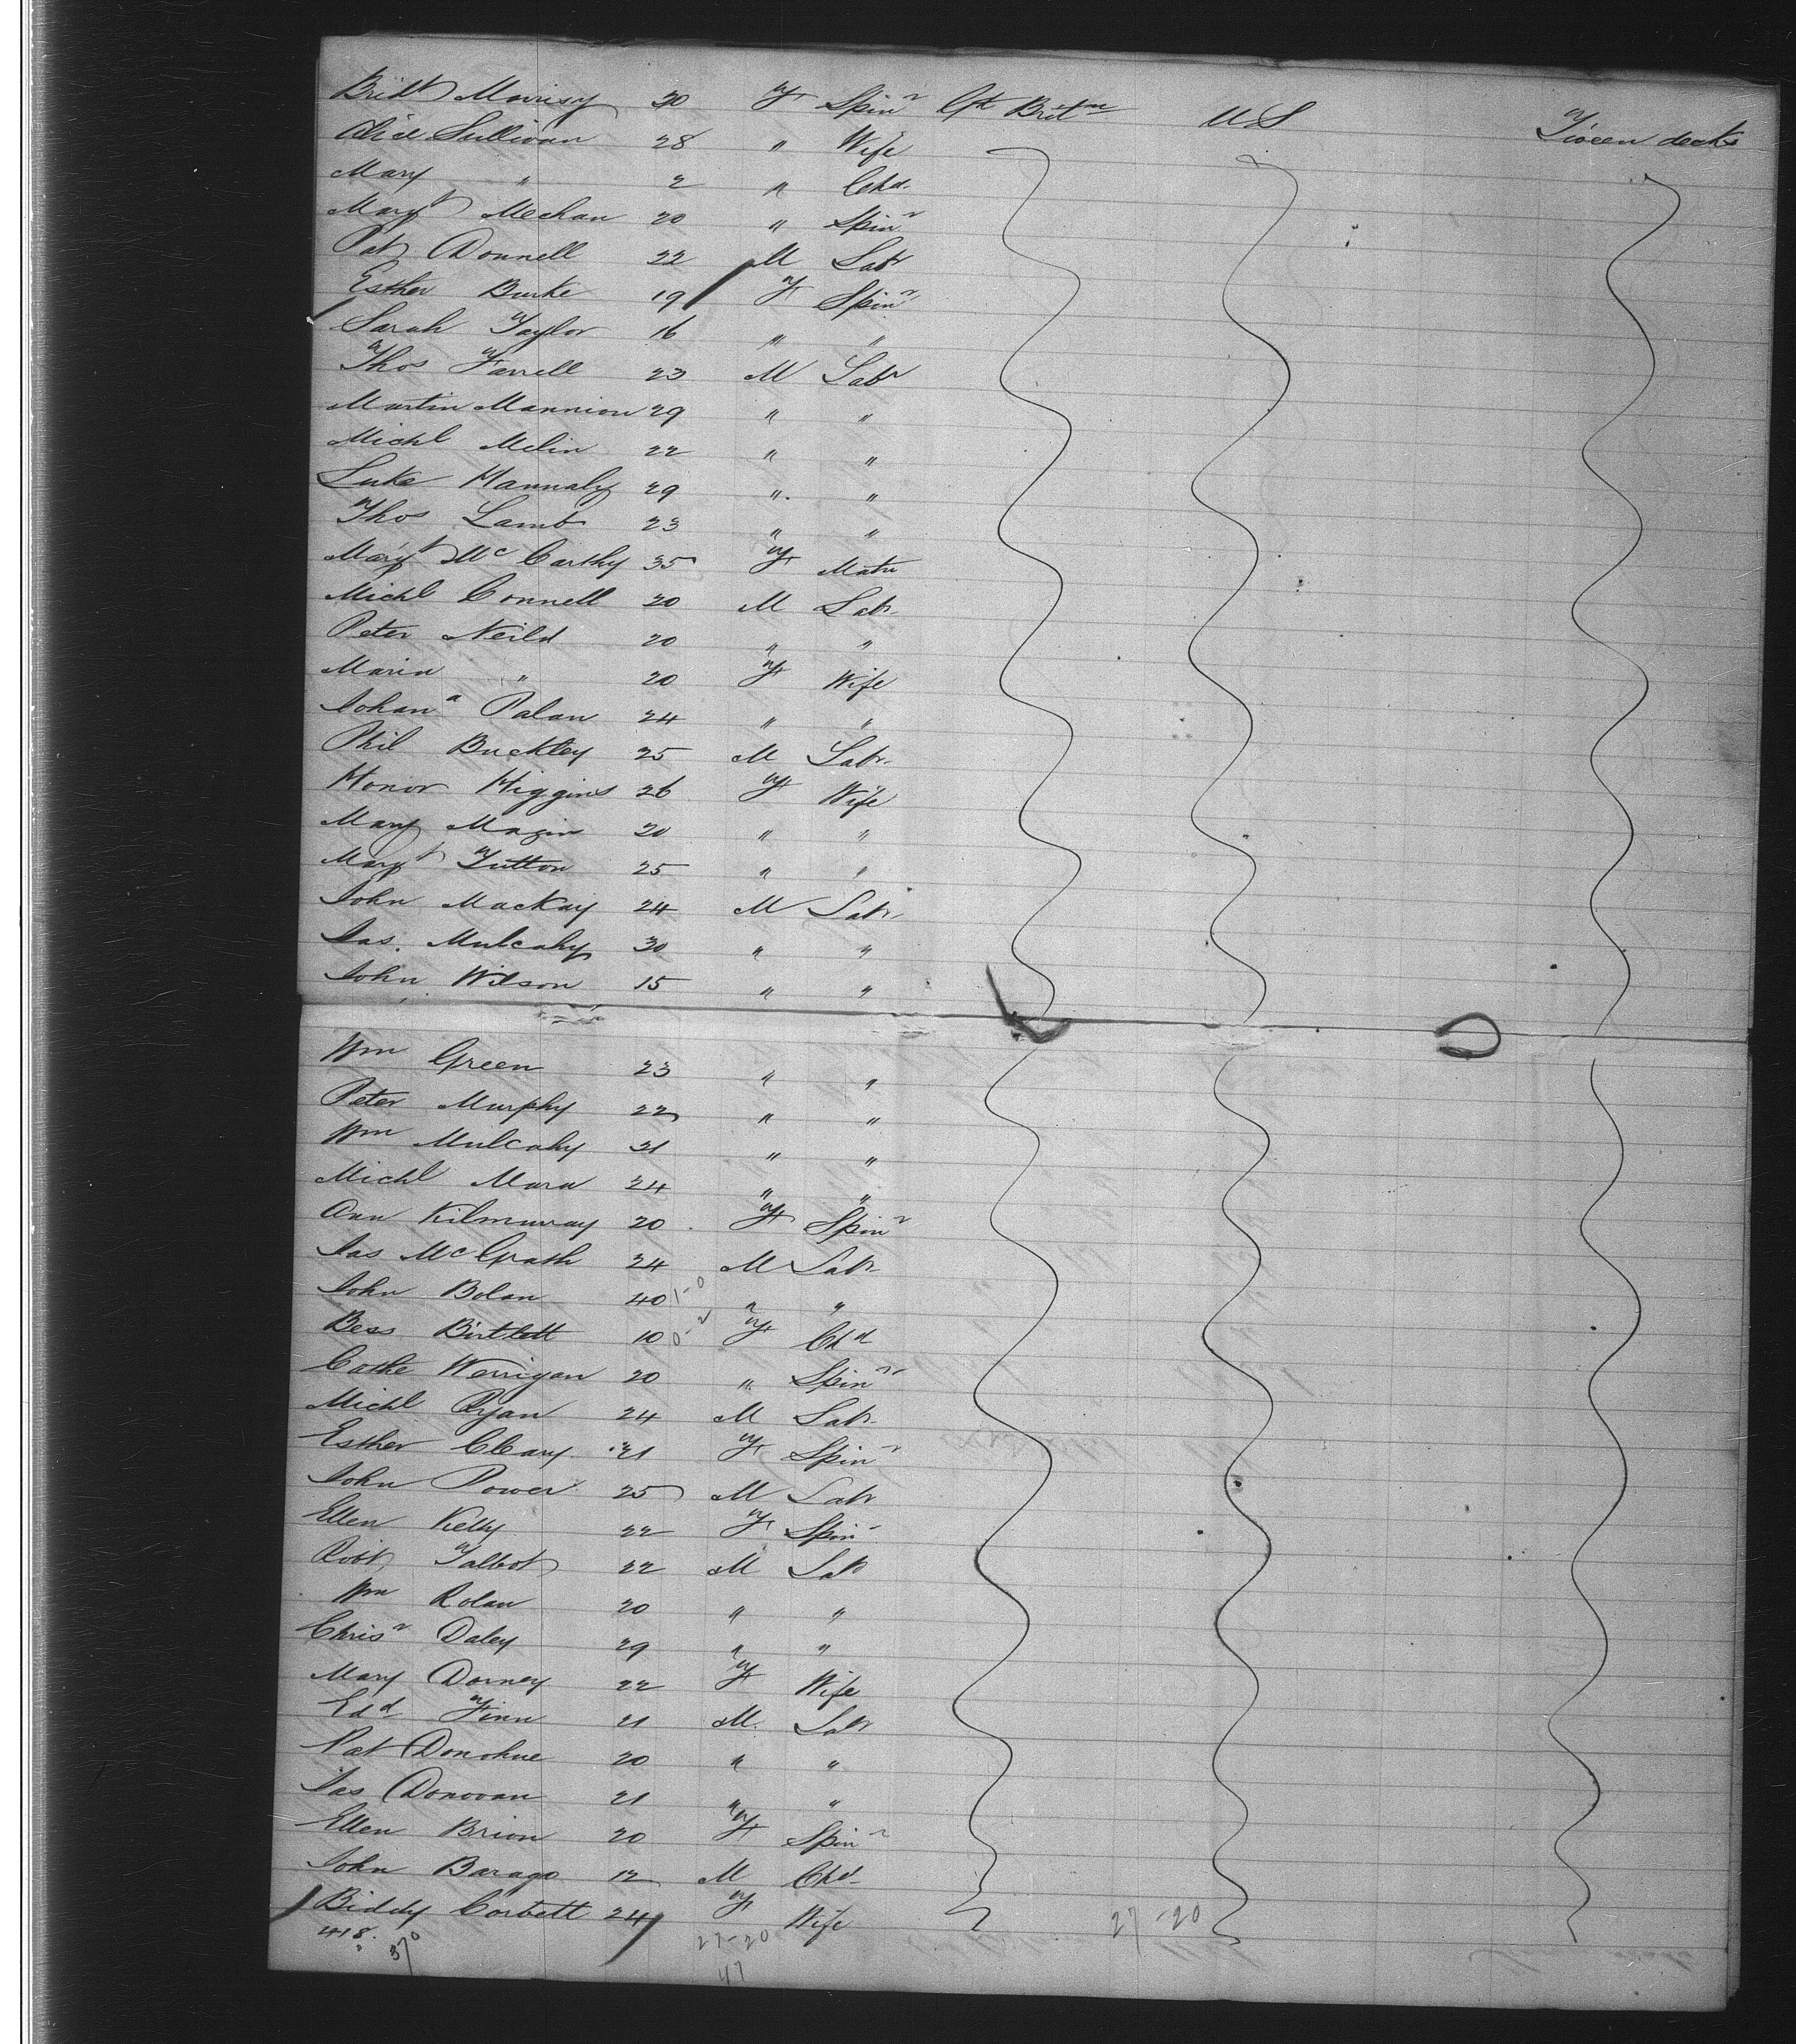 Bridt Morrisey 30 F Spinr Gt Britn U S Tween decks
Alice Sullivan 28 " Wife
Mary " 2 " Chd.
Margt Mechan 20 " Spinr
Pat Donnell 22 M Labr
Esther Burke 19 F Spinr
Sarah Taylor 16 " "
Thos Farrell 23 M Labr
Martin Mannion 29 " "
Michl Melin 22 " "
Luke Hannaly 29 " "
Thos Lamb 23 " "
Margt McCarthy 35 F Matn
Michl Connell 20 M Labr.
Peter Neild 20 " "
Maria " 20 F Wife
Johana Palan 24 " "
Phil Buckley 25 M Labr.
Honor Higgins 26 F Wife
Mary Magin 20 " "
Margt Tutton 25 " "
John Mackay 24 M Labr.
Jas. Mulcahy 30 " "
John Wilson 15 " "
Wm Green 23 " "
Peter Murphy 22 " "
Wm Mulcahy 21 " "
Michl Mara 24 " "
Ann Kilmurray 20 F Spinr
Jas McGrath 24 M Labr.
John Bolan 40 1-0 " "
Bess Birtlett 10 0-2 F Chd
Cathe Werrigan 20 " Spinr
Michl Ryan 24 M Labr.
Esther Cleary 21 F Spinr
John Power 25 M Labr
Ellen Kelly 22 F Spinr
Robt Talbot 22 M Lab
Wm Rolan 20 " "
Chrisr Daley 29 " "
Mary Dorney 22 F Wife
Edd Finn 21 M. Labr
Pat Donohue 20 " "
Jas Donovan 21 " "
Ellen Brion 20 F Spinr
John Barago 12 M Chd.
Biddy Corbett 24 F Wife
418. 370 27-20 27-20
47